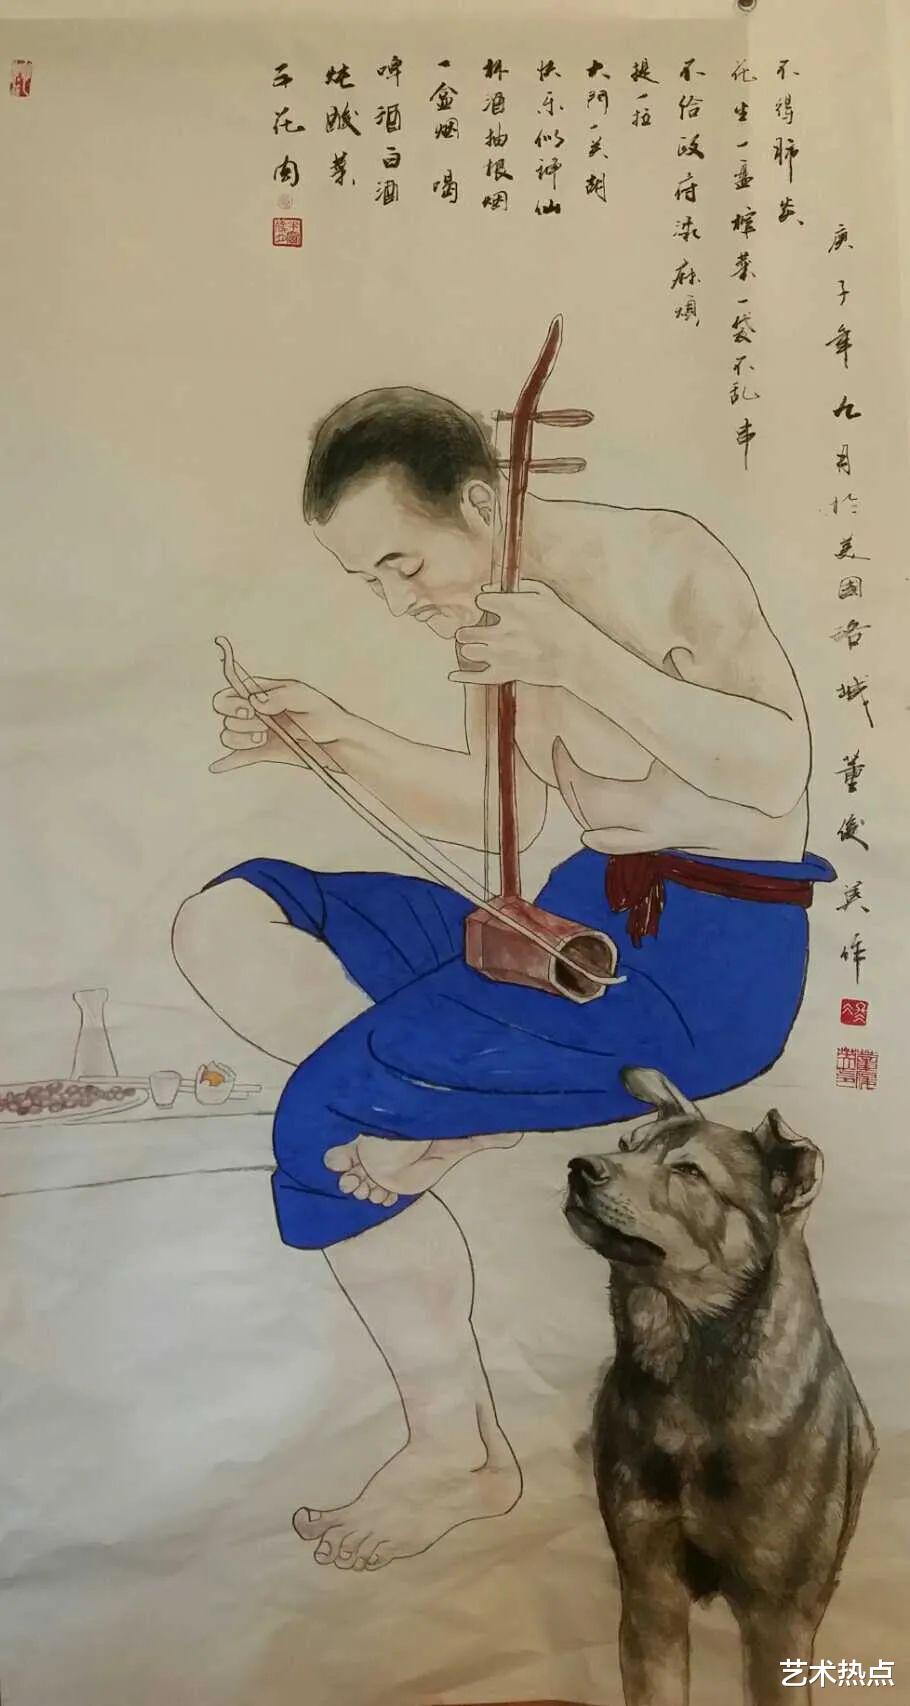 五花肉
炖酸菜
啤酒白酒
一盒烟 喝
杯酒抽根烟
快乐似神仙
大门一关胡
提一拉
不给政府添麻煩
花生一盘榨菜一袋不乱串
不得肺炎
庚子年九月於美国洛城董俊英作
艺术热点